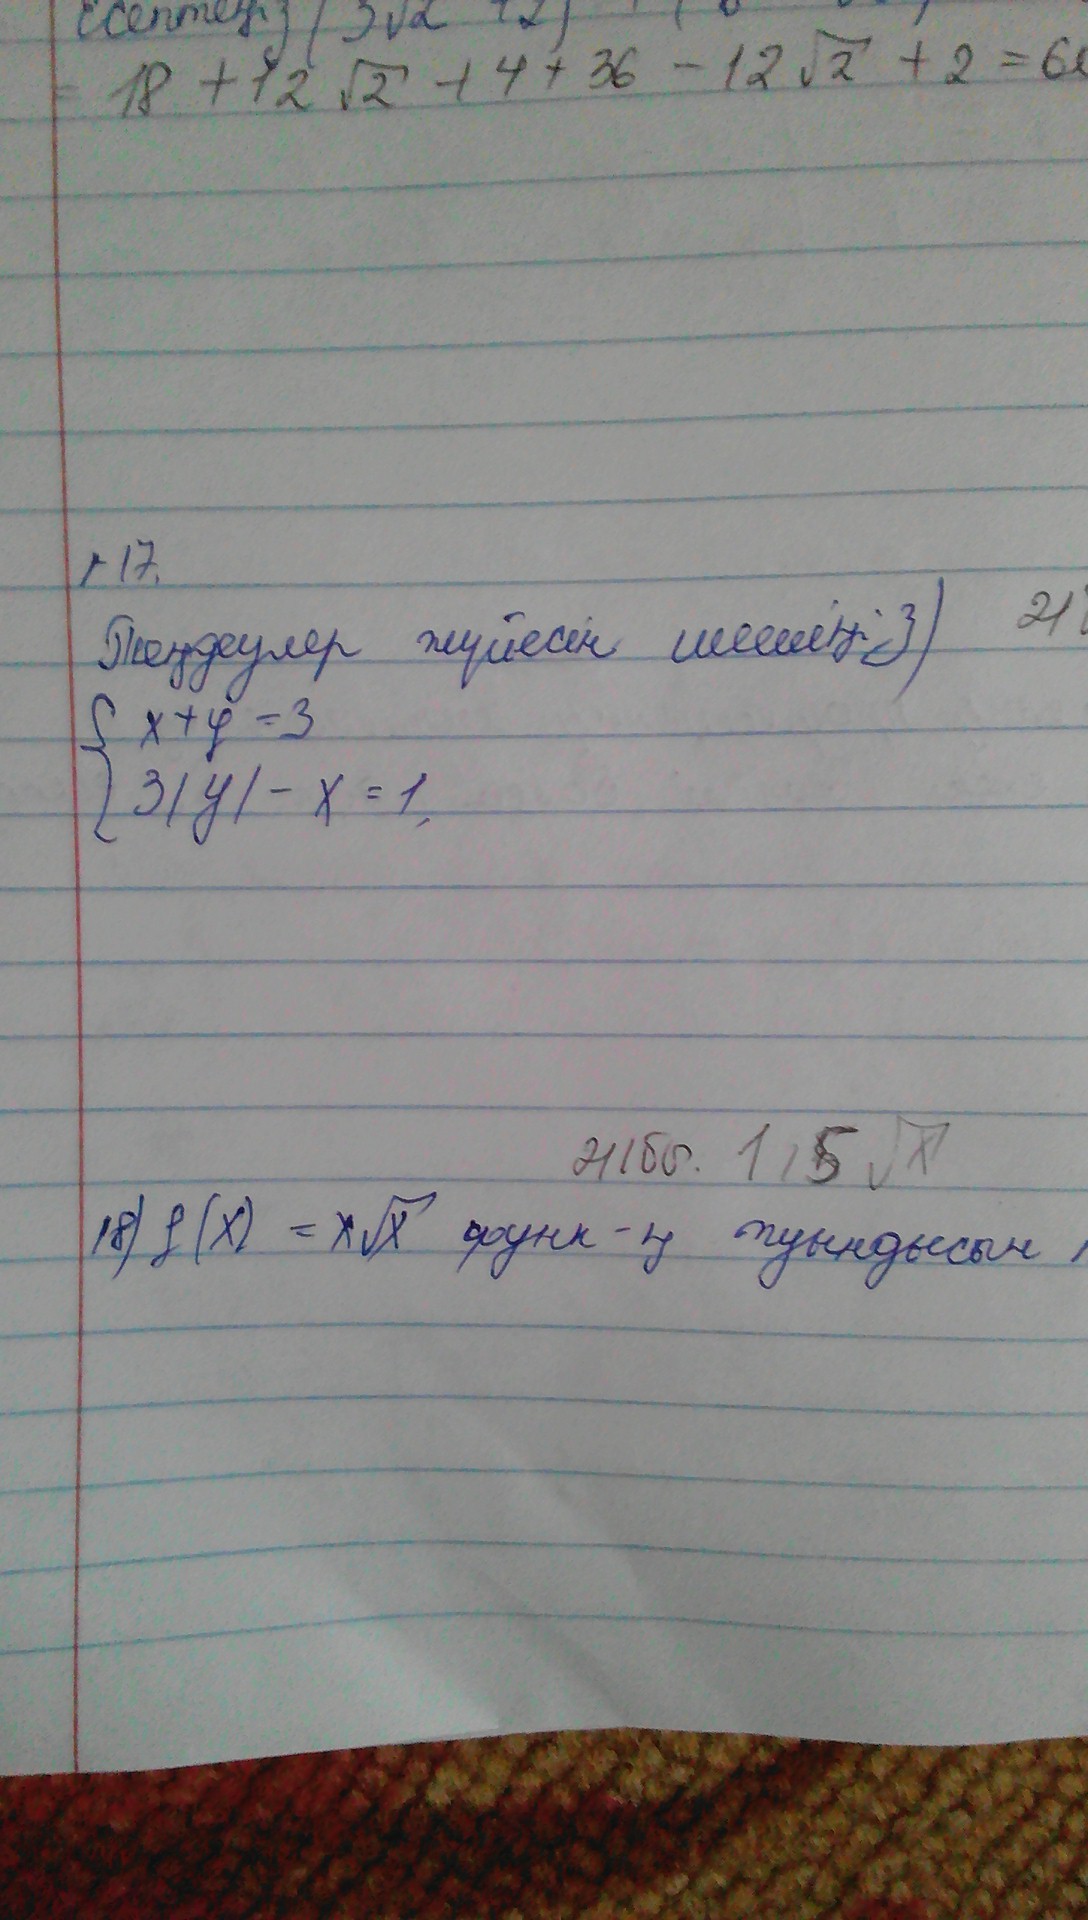 Есептеңіз (3√2 + 2)
= 18 + 12√2 + 4 + 36 - 12√2 + 2 = 6
17.
Теңдеулер жүйесін шешеңіз)
{ x + y = 3
3|y| - x = 1,
жауабы. 1,5√x
18) f(x) = x√x функ-ң туындысын